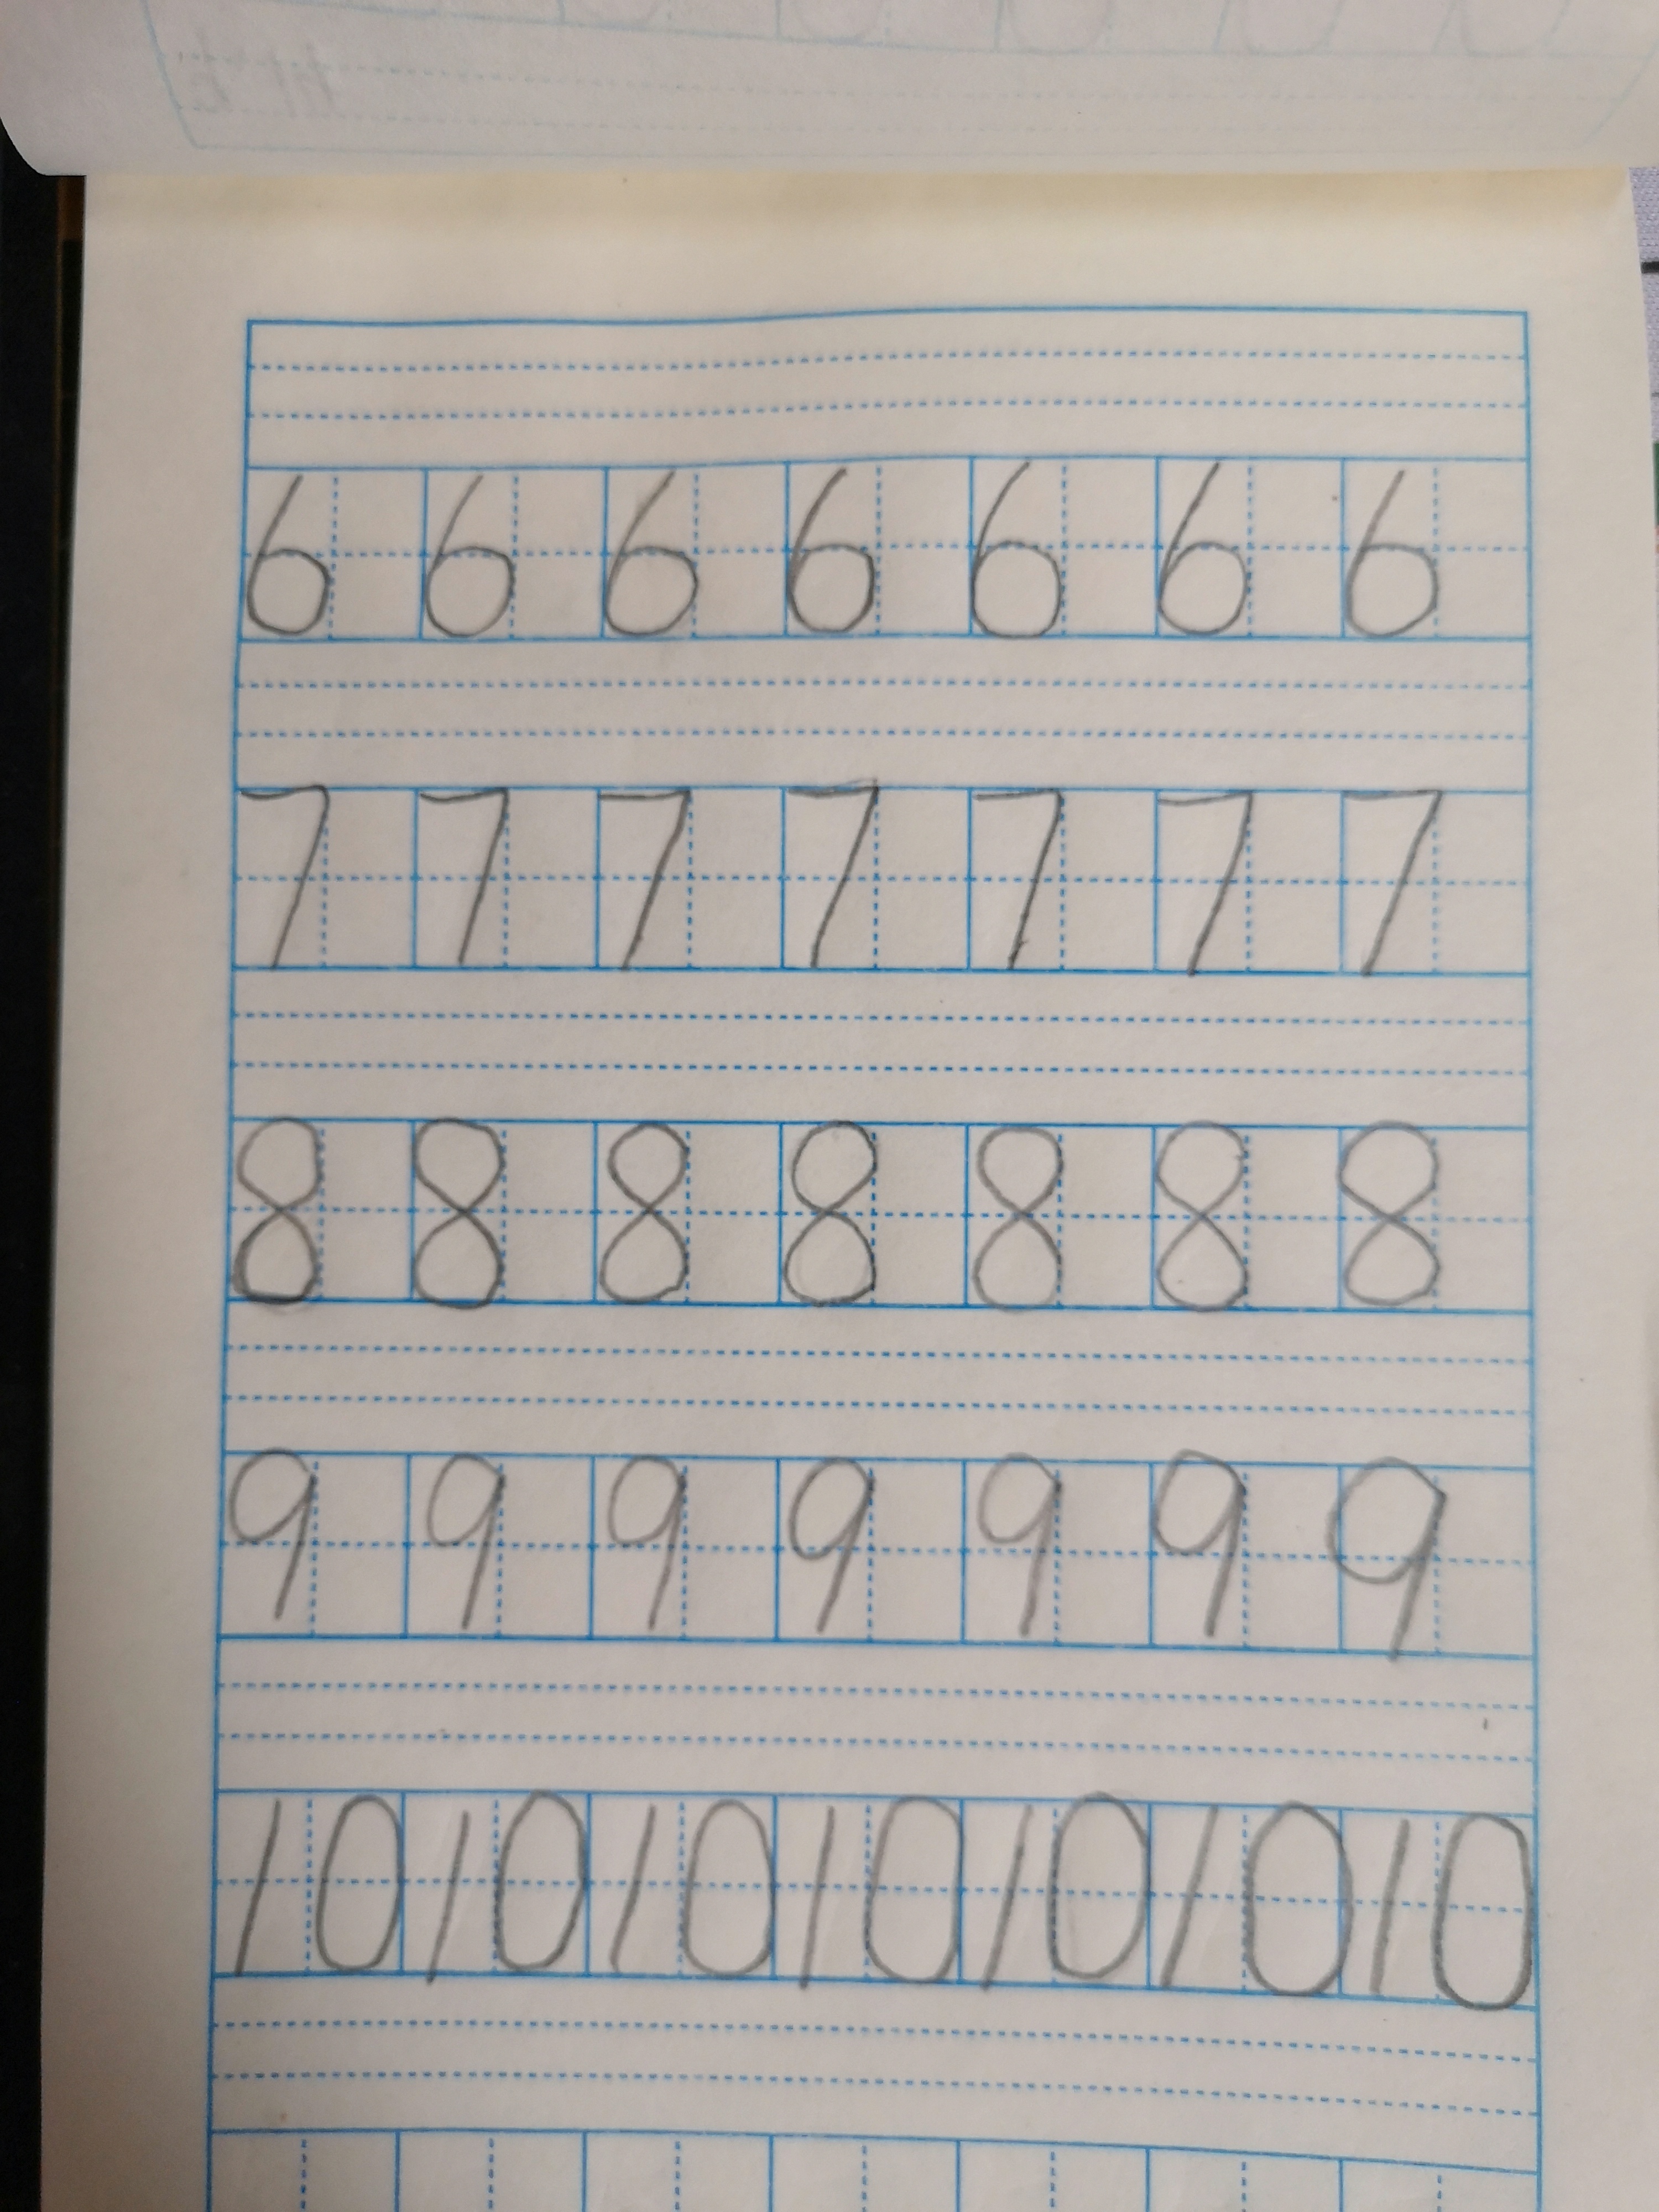 6 6 6 6 6 6 6
7 7 7 7 7 7 7
8 8 8 8 8 8 8
9 9 9 9 9 9 9
10 10 10 10 10 10 10